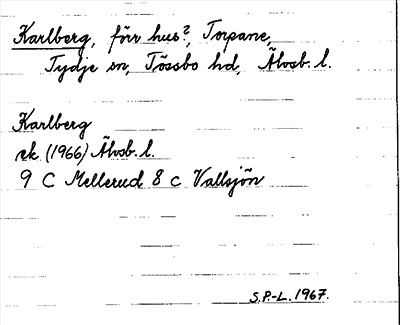 Karlberg, förv hus?, Torpane,
Tydje sn, Tössbo hd, Älvsb. l.
Karlberg
ek (1966) Älvsb. l.
9 C Mellerud 8 c Vallsjön
S.P.-L. 1967.